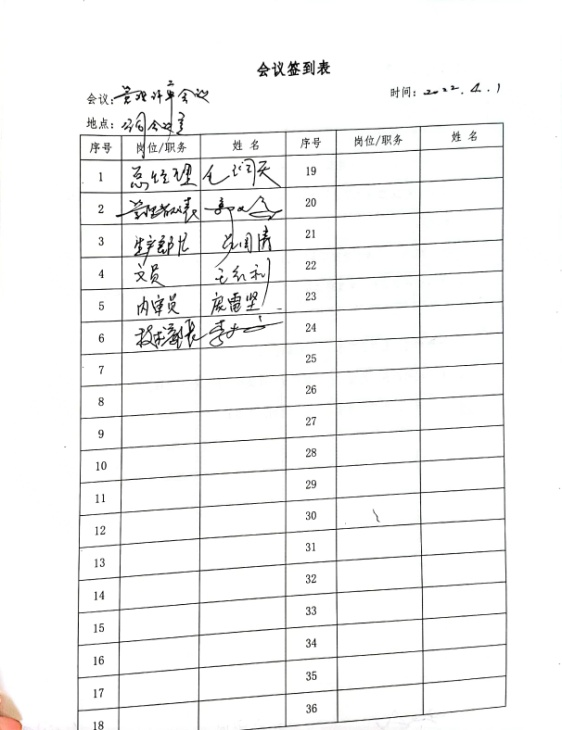 会议签到表
会议: 管理评审会议 时间: 2022.4.1
地点: 公司会议室
序号 岗位/职务 姓名 序号 岗位/职务 姓名
1 总经理 19
2 管理者代表 20
3 生产部长 21
4 文员 王红利 22
5 内审员 庞雷坚 23
6 技术部长 24
7 25
8 26
9 27
10 28
11 29
12 30
13 31
14 32
15 33
16 34
17 35
18 36